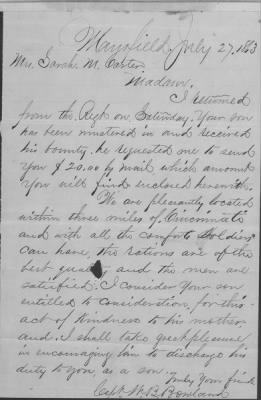 Maysfield July 27, 1863
Mrs. Sarah M. Carter
Madam.
I returned
from the Regt on Saturday. Your son
has been mustered in and received
his bounty. he requested me to send
you $20.00 by mail which amount
you will find enclosed herewith.
We are pleasantly located
within three miles of Cincinnati
and with all the comforts Soldiers
can have, the rations are of the
best quality and the men are
satisfied. I consider your son
entitled to consideration for this
act of kindness to his mother
and I shall take great pleasure
in encouraging him to discharge his
duty to you, as a son.
Truly Your friend
Capt. W. B. Rowland